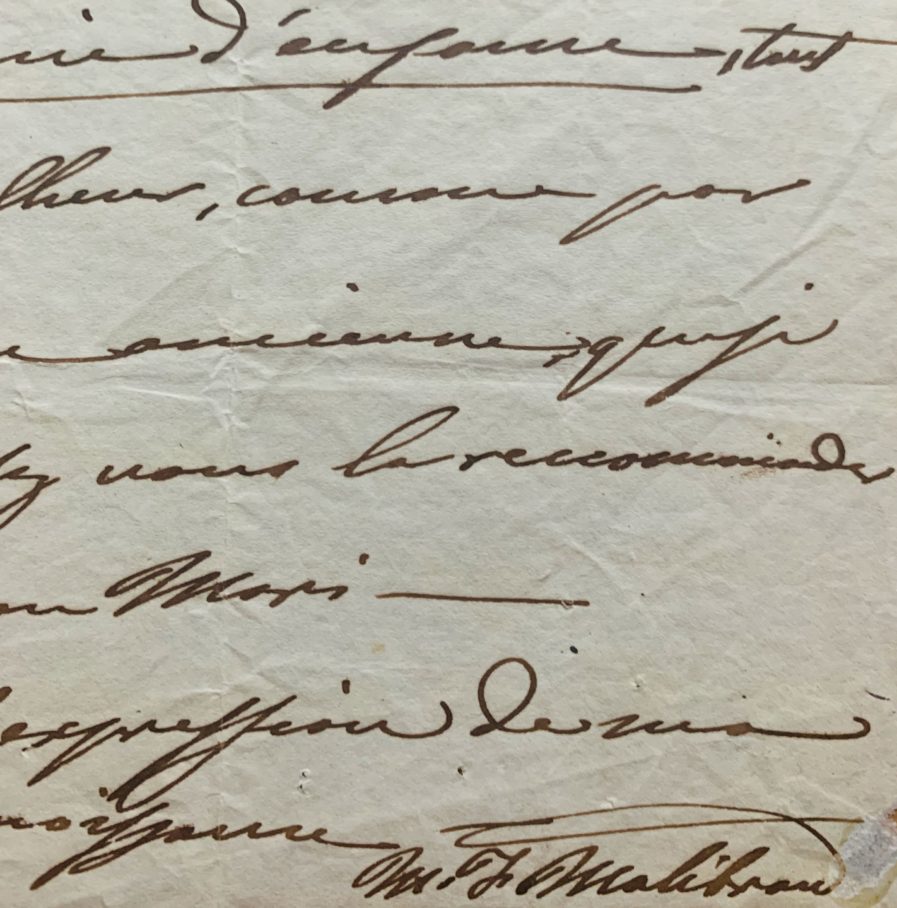 mie d'enfance, tant
lheur, comme par
ancienne, quasi
ez vous la recommander
on Mari —
l'expression de ma
noissance
M. F. Malibran